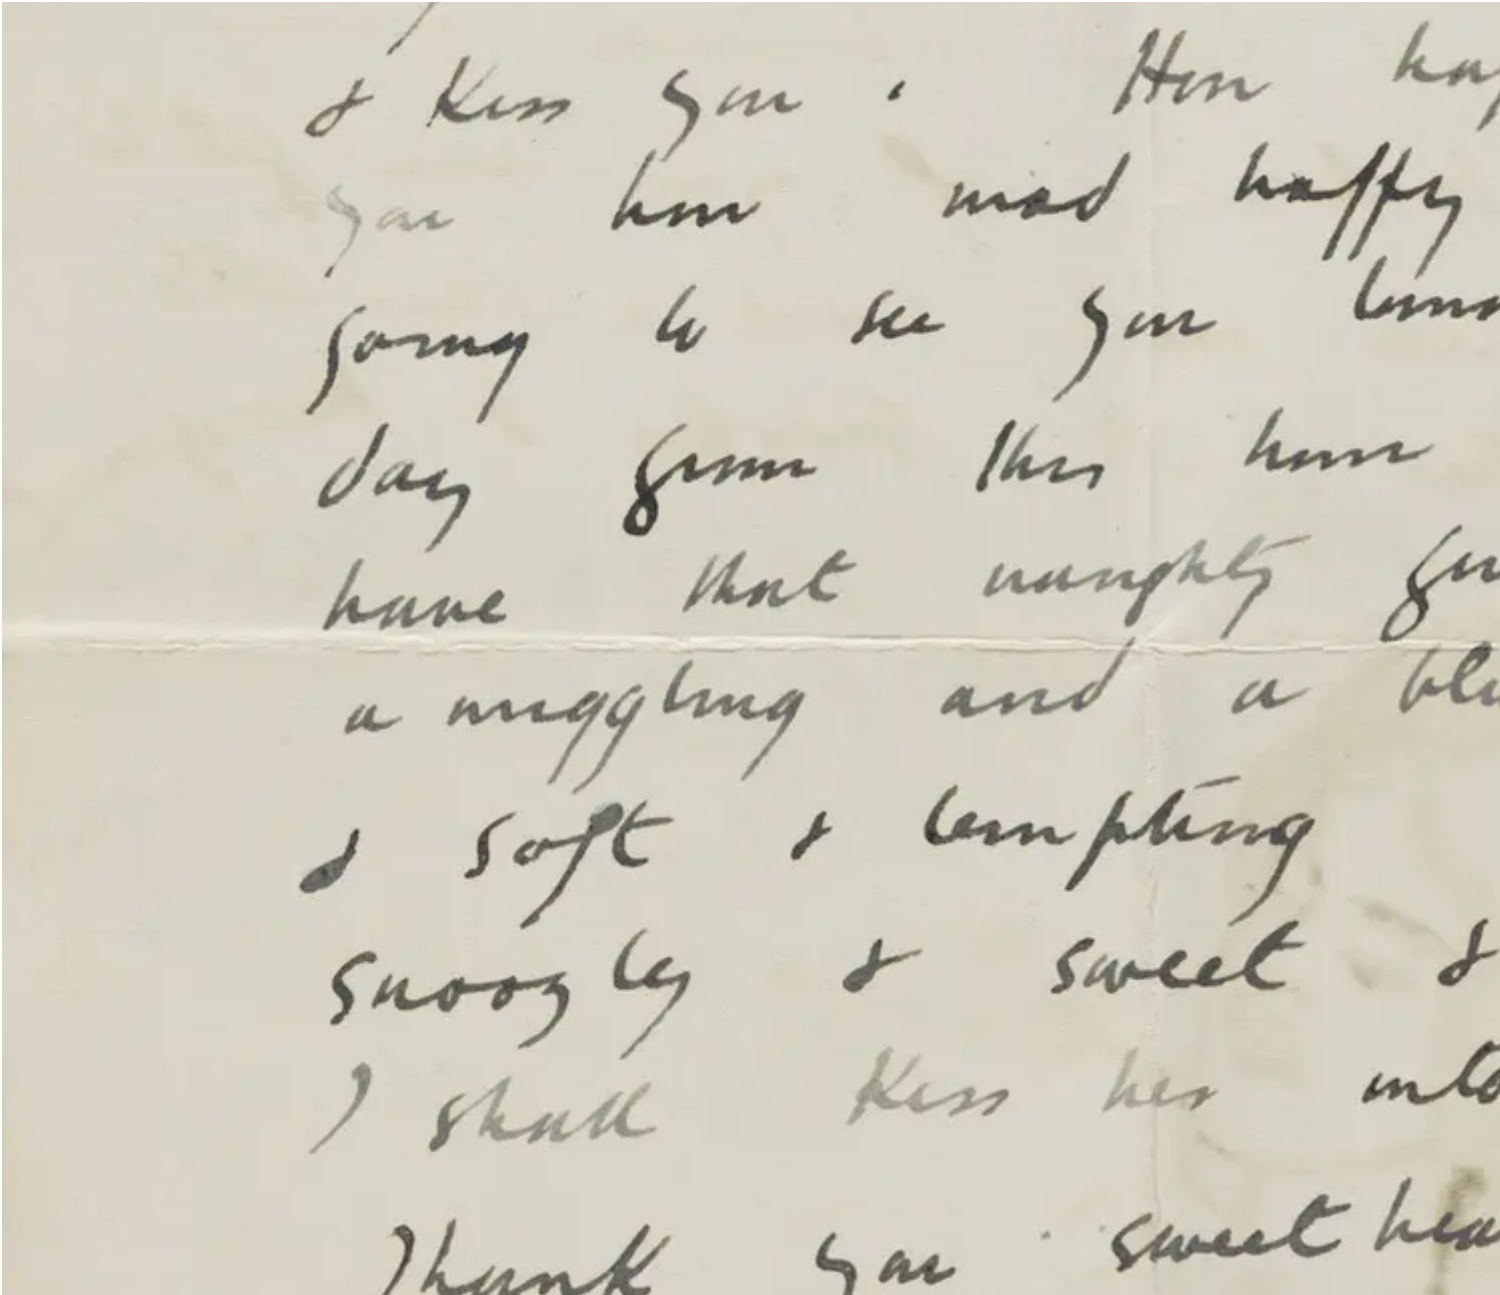 & Kiss you. How hap
you how mad happy
going to see you tomo
day from this hour
have that naughty gir
a wriggling and a blu
& soft & tempting
snoozley & sweet &
I shall Kiss her into
Thank you sweet hea